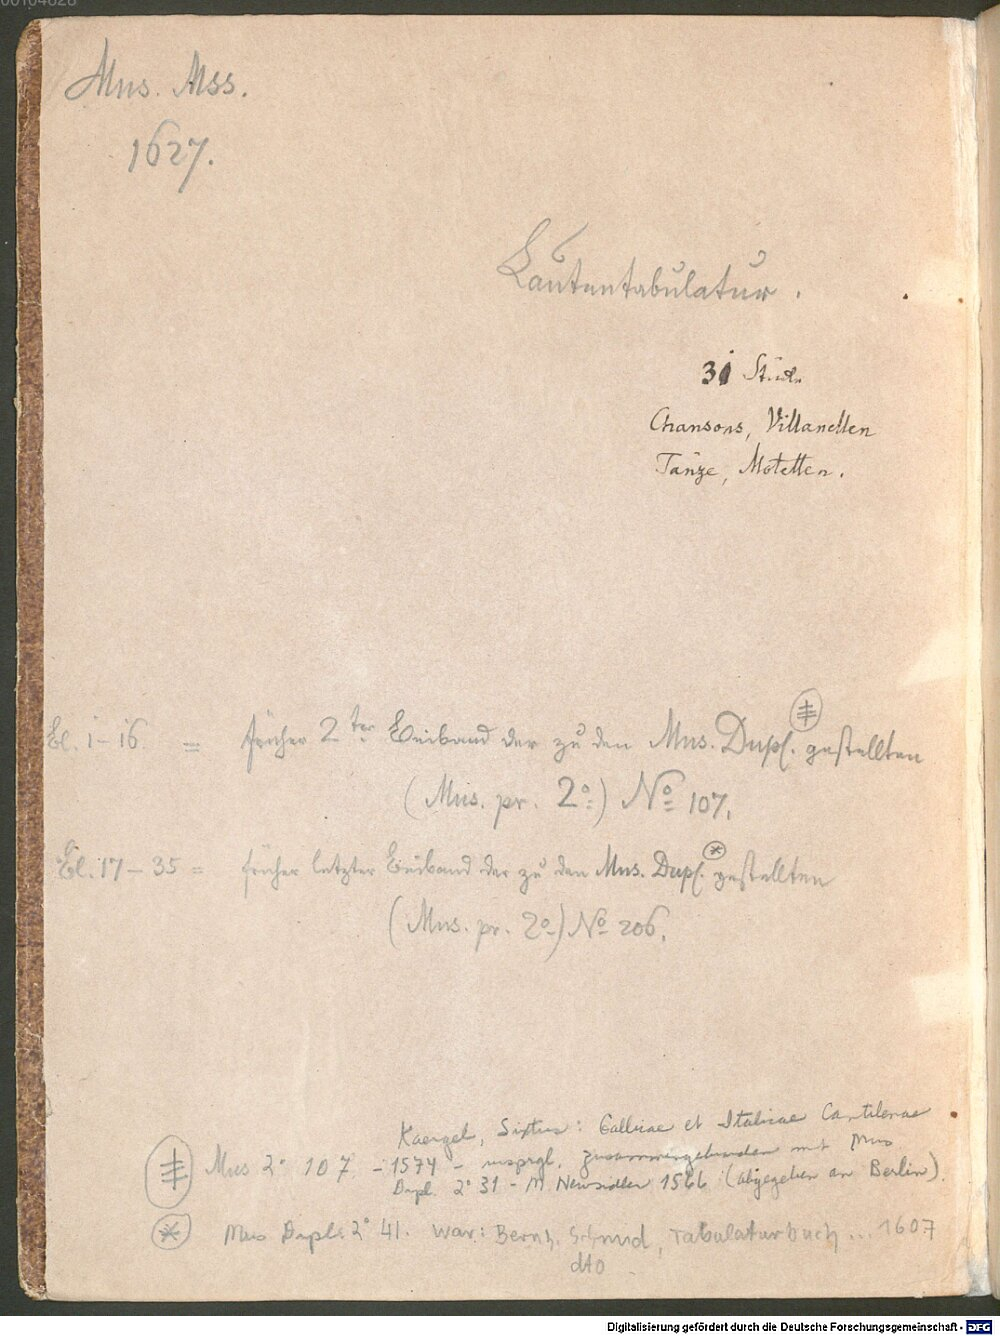 00104628
Mus. Mss.
1627.
Lautentabulatur.
31 Stück
Chansons, Villanellen
Tänze, Motetten.
Bl. 1-16 = früher 2ter Beiband der zu den Mus. Dupl. gestellten
(Mus. pr. 2o) No 107.
Bl. 17-35 = früher letzter Beiband der zu den Mus. Dupl. * gestellten
(Mus. pr. 2o) No 206.
Kaergel, Sixtus: Gallicae et Italicae Cantilenae
Mus 2° 107 - 1574 - ursprgl. zusammengebunden mit Mus
Dupl. 2° 31 - M. Newsidler 1566 (abgegeben an Berlin).
* Mus Dupl. 2° 41. war: Bernh. Schmid, Tabulaturbuch... 1607
dto
Digitalisierung gefördert durch die Deutsche Forschungsgemeinschaft - DFG